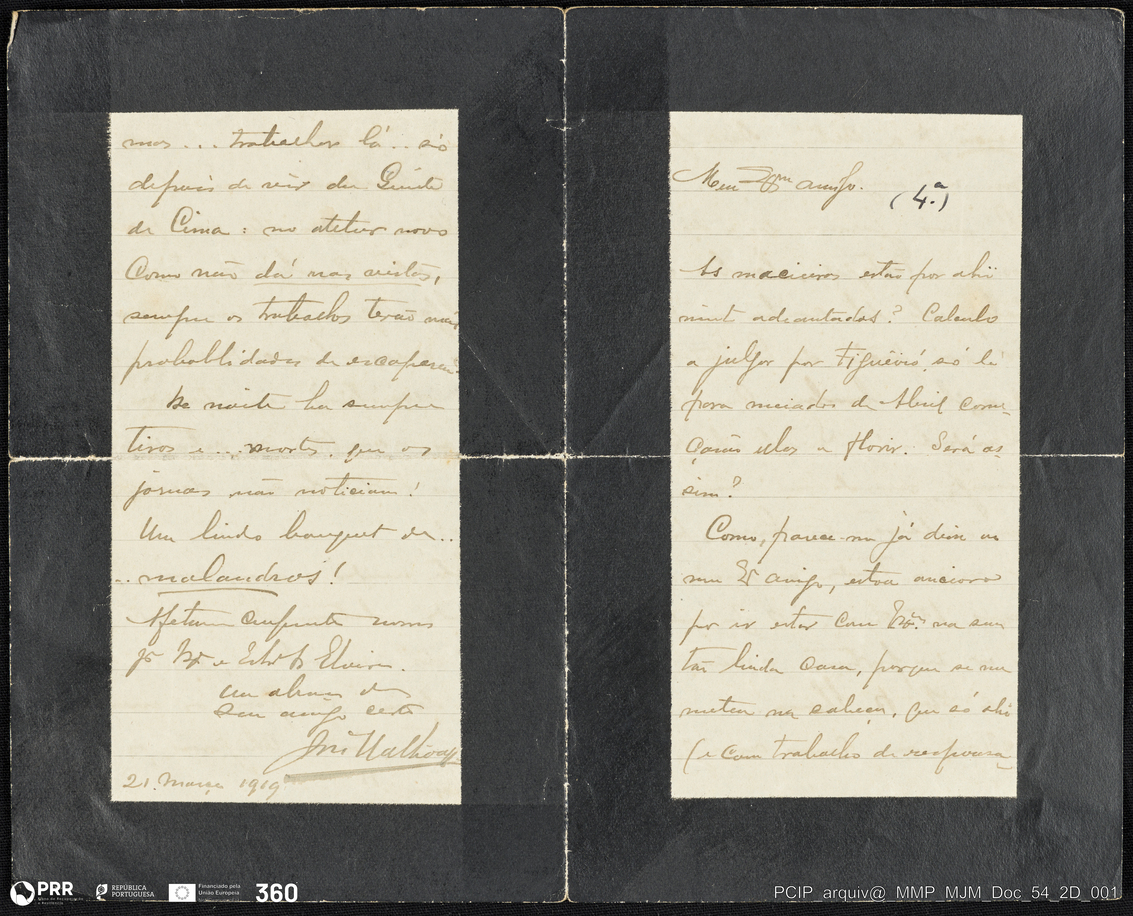 mos... trabalhos lá... só
depois de vir da Quinta
de Cima: no atelier novo
Como não dá nas vistas,
sempre os trabalhos terão mais
probablidades de escaparem
De noite ha sempre
tiros e... mortes, que os
jornaes não noticiam!
Um lindo bouquet de..
.. malandros!
cumprimentos nossos
pª e Elvira.
Um abraço do
seu amigo certo
José Malhoa
21. Março 1919
Meu amigo.
(4.ª)
As macieiras estão por ahi
muito adeantadas? Calculo
a julgar por Figueiró, só lá
para meiados de Abril come-
çarão ellas a florir. Será as
sim?
Como, parece-me já disse ao
meu Exº amigo, estou ancioso
por ir estar com na sua
tão linda casa, porque se me
metteu na cabeça, que só ahi
(e com trabalho de responsa-
PRR
Plano de Recuperação e Resiliência
REPÚBLICA
PORTUGUESA
Financiado pela
União Europeia
360
PCIP_arquiv@_MMP_MJM_Doc_54_2D_001